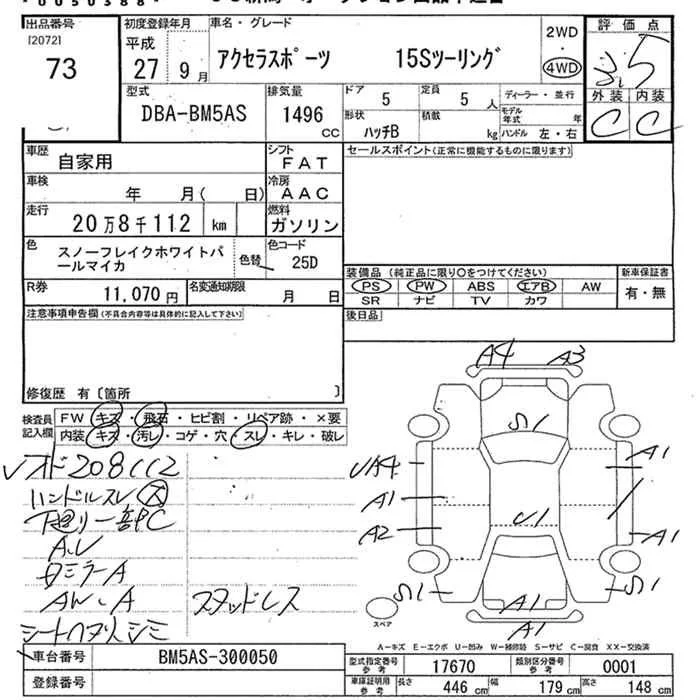 出品番号
[2072]
73
初度登録年月
平成
27 9月
車名・グレード
アクセラスポーツ 15Sツーリング
2WD
・
4WD
評価点
3.5
外装 内装
C C
型式
DBA-BM5AS
排気量
1496
CC
ドア
5
定員
5人
ディーラー・並行
モデル年式 年
形状
ハッチB
積載
kg
ハンドル 左・右
車歴
自家用
シフト
FAT
セールスポイント(正常に機能するものに限ります)
車検
年 月( 日)
冷房
AAC
走行
20万8千112 km
燃料
ガソリン
色
スノーフレイクホワイトパールマイカ
色替
色コード
25D
装備品(純正品に限り○をつけてください)
新車保証書
PS PW ABS エアB AW
有・無
SR ナビ TV カワ
R券
11,070円
名変通知期限
月 日
後日品
注意事項申告欄(不具合内容等は具体的に記入して下さい)
修復歴 有〔箇所 〕
検査員記入欄
FW キズ・飛石・ヒビ割・リペア跡・×要
内装 キズ・汚レ・コゲ・穴・スレ・キレ・破レ
オド208112
ハンドルスレ
下廻り一部PC
A.U
ミラーA
AW.A
スタッドレス
A4 A3
S1
UA4
A1
A1
A2
U1
A1
S1
S1
A1
A1
スペア
A-キズ E-エクボ U-凹み W-補修跡 S-サビ C-腐食 XX-交換済
車台番号
BM5AS-300050
登録番号
型式指定番号
参考
17670
類別区分番号
参考
0001
車庫証明用
参考
長さ 446cm
幅 179cm
高さ 148cm